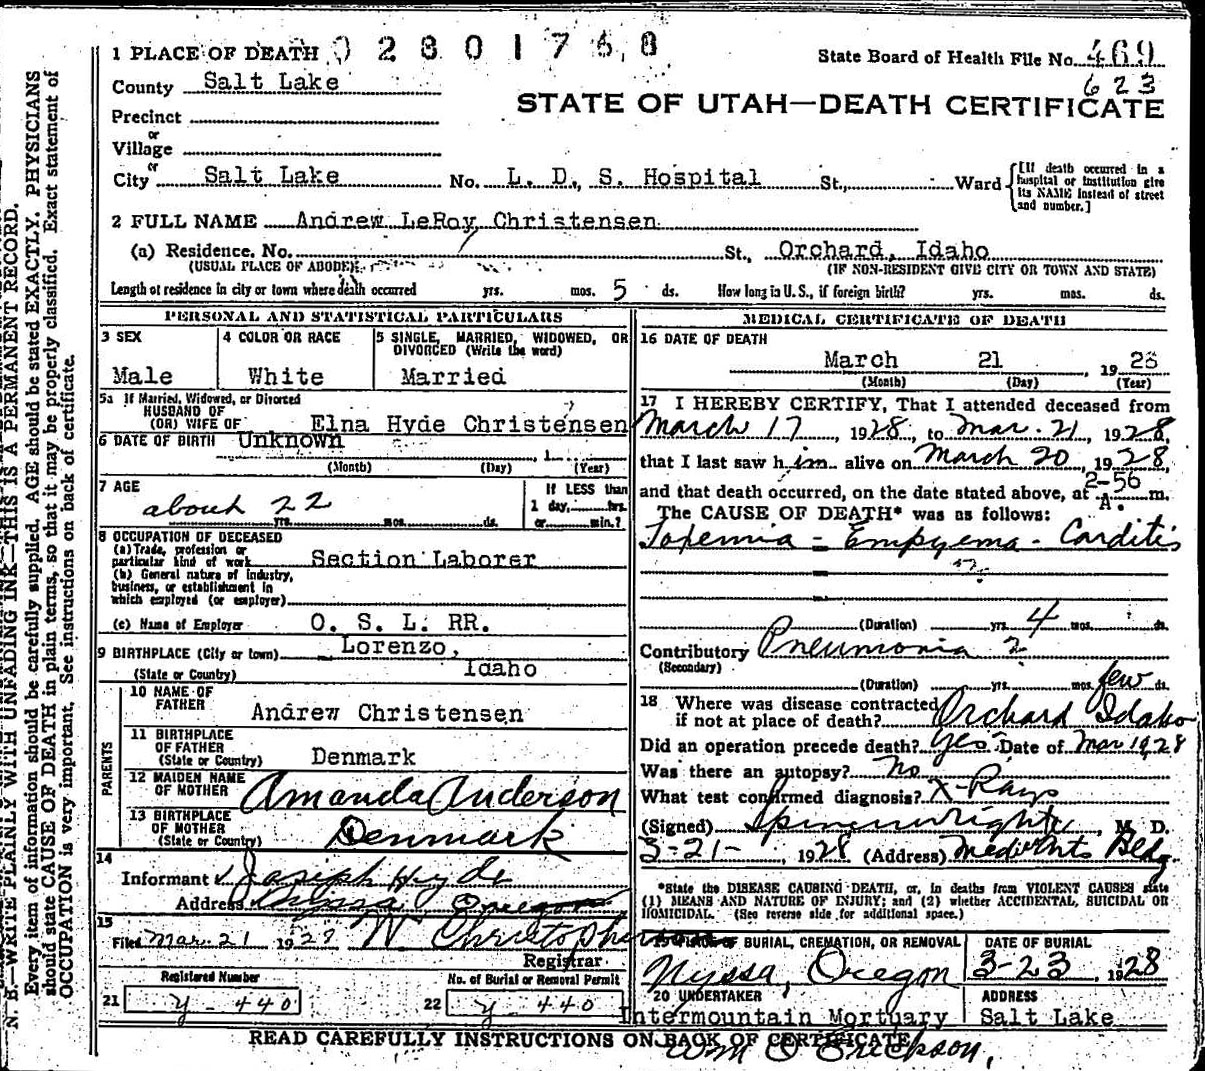 N. B.—WRITE PLAINLY WITH UNFADING INK—THIS IS A PERMANENT RECORD.
Every item of information should be carefully supplied. AGE should be stated EXACTLY. PHYSICIANS
should state CAUSE OF DEATH in plain terms, so that it may be properly classified. Exact statement of
OCCUPATION is very important. See instructions on back of certificate.
1 PLACE OF DEATH 02801768
State Board of Health File No. 469
623
County Salt Lake
STATE OF UTAH—DEATH CERTIFICATE
Precinct
or
Village
or
City Salt Lake No. L. D. S. Hospital St., Ward
[If death occurred in a
hospital or institution give
its NAME instead of street
and number.]
2 FULL NAME Andrew LeRoy Christensen
(a) Residence. No. St., Orchard, Idaho
(USUAL PLACE OF ABODE) (IF NON-RESIDENT GIVE CITY OR TOWN AND STATE)
Length of residence in city or town where death occurred yrs. mos. 5 ds. How long in U. S., if foreign birth? yrs. mos. ds.
PERSONAL AND STATISTICAL PARTICULARS
3 SEX 4 COLOR OR RACE 5 SINGLE, MARRIED, WIDOWED, OR
DIVORCED (Write the word)
Male White Married
5a If Married, Widowed, or Divorced
HUSBAND OF
(OR) WIFE OF Elna Hyde Christensen
6 DATE OF BIRTH Unknown , 1
(Month) (Day) (Year)
7 AGE If LESS than
about 22 1 day, hrs.
yrs. mos. ds. or min.?
8 OCCUPATION OF DECEASED
(a) Trade, profession or
particular kind of work Section Laborer
(b) General nature of industry,
business, or establishment in
which employed (or employer)
(c) Name of Employer O. S. L. RR.
9 BIRTHPLACE (City or town) Lorenzo,
(State or Country) Idaho
PARENTS
10 NAME OF
FATHER Andrew Christensen
11 BIRTHPLACE
OF FATHER
(State or Country) Denmark
12 MAIDEN NAME
OF MOTHER Amanda Anderson
13 BIRTHPLACE
OF MOTHER
(State or Country) Denmark
14
Informant Joseph Hyde
Address Nyssa Oregon
15
Filed Mar. 21 1928 W Christopherson
Registrar
Registered Number No. of Burial or Removal Permit
21 y-440 22 y-440
MEDICAL CERTIFICATE OF DEATH
16 DATE OF DEATH
March 21, 1928
(Month) (Day) (Year)
17 I HEREBY CERTIFY, That I attended deceased from
March 17, 1928, to Mar. 21, 1928,
that I last saw him alive on March 20, 1928,
and that death occurred, on the date stated above, at 2-56 A. m.
The CAUSE OF DEATH* was as follows:
Toxemia - Empyema - Carditis
(Duration) yrs. 4 mos. ds.
Contributory Pneumonia
(Secondary)
(Duration) yrs. mos. few ds.
18 Where was disease contracted
if not at place of death? Orchard Idaho
Did an operation precede death? Yes Date of Mar 19, 28
Was there an autopsy? No
What test confirmed diagnosis? X-Rays
(Signed) M. D.
3-21-, 1928 (Address) Bldg.
*State the DISEASE CAUSING DEATH, or, in deaths from VIOLENT CAUSES state
(1) MEANS AND NATURE OF INJURY; and (2) whether ACCIDENTAL, SUICIDAL OR
HOMICIDAL. (See reverse side for additional space.)
19 PLACE OF BURIAL, CREMATION, OR REMOVAL DATE OF BURIAL
Nyssa, Oregon 3-23, 1928
20 UNDERTAKER ADDRESS
Intermountain Mortuary Salt Lake
READ CAREFULLY INSTRUCTIONS ON BACK OF CERTIFICATE
Wm Erickson,